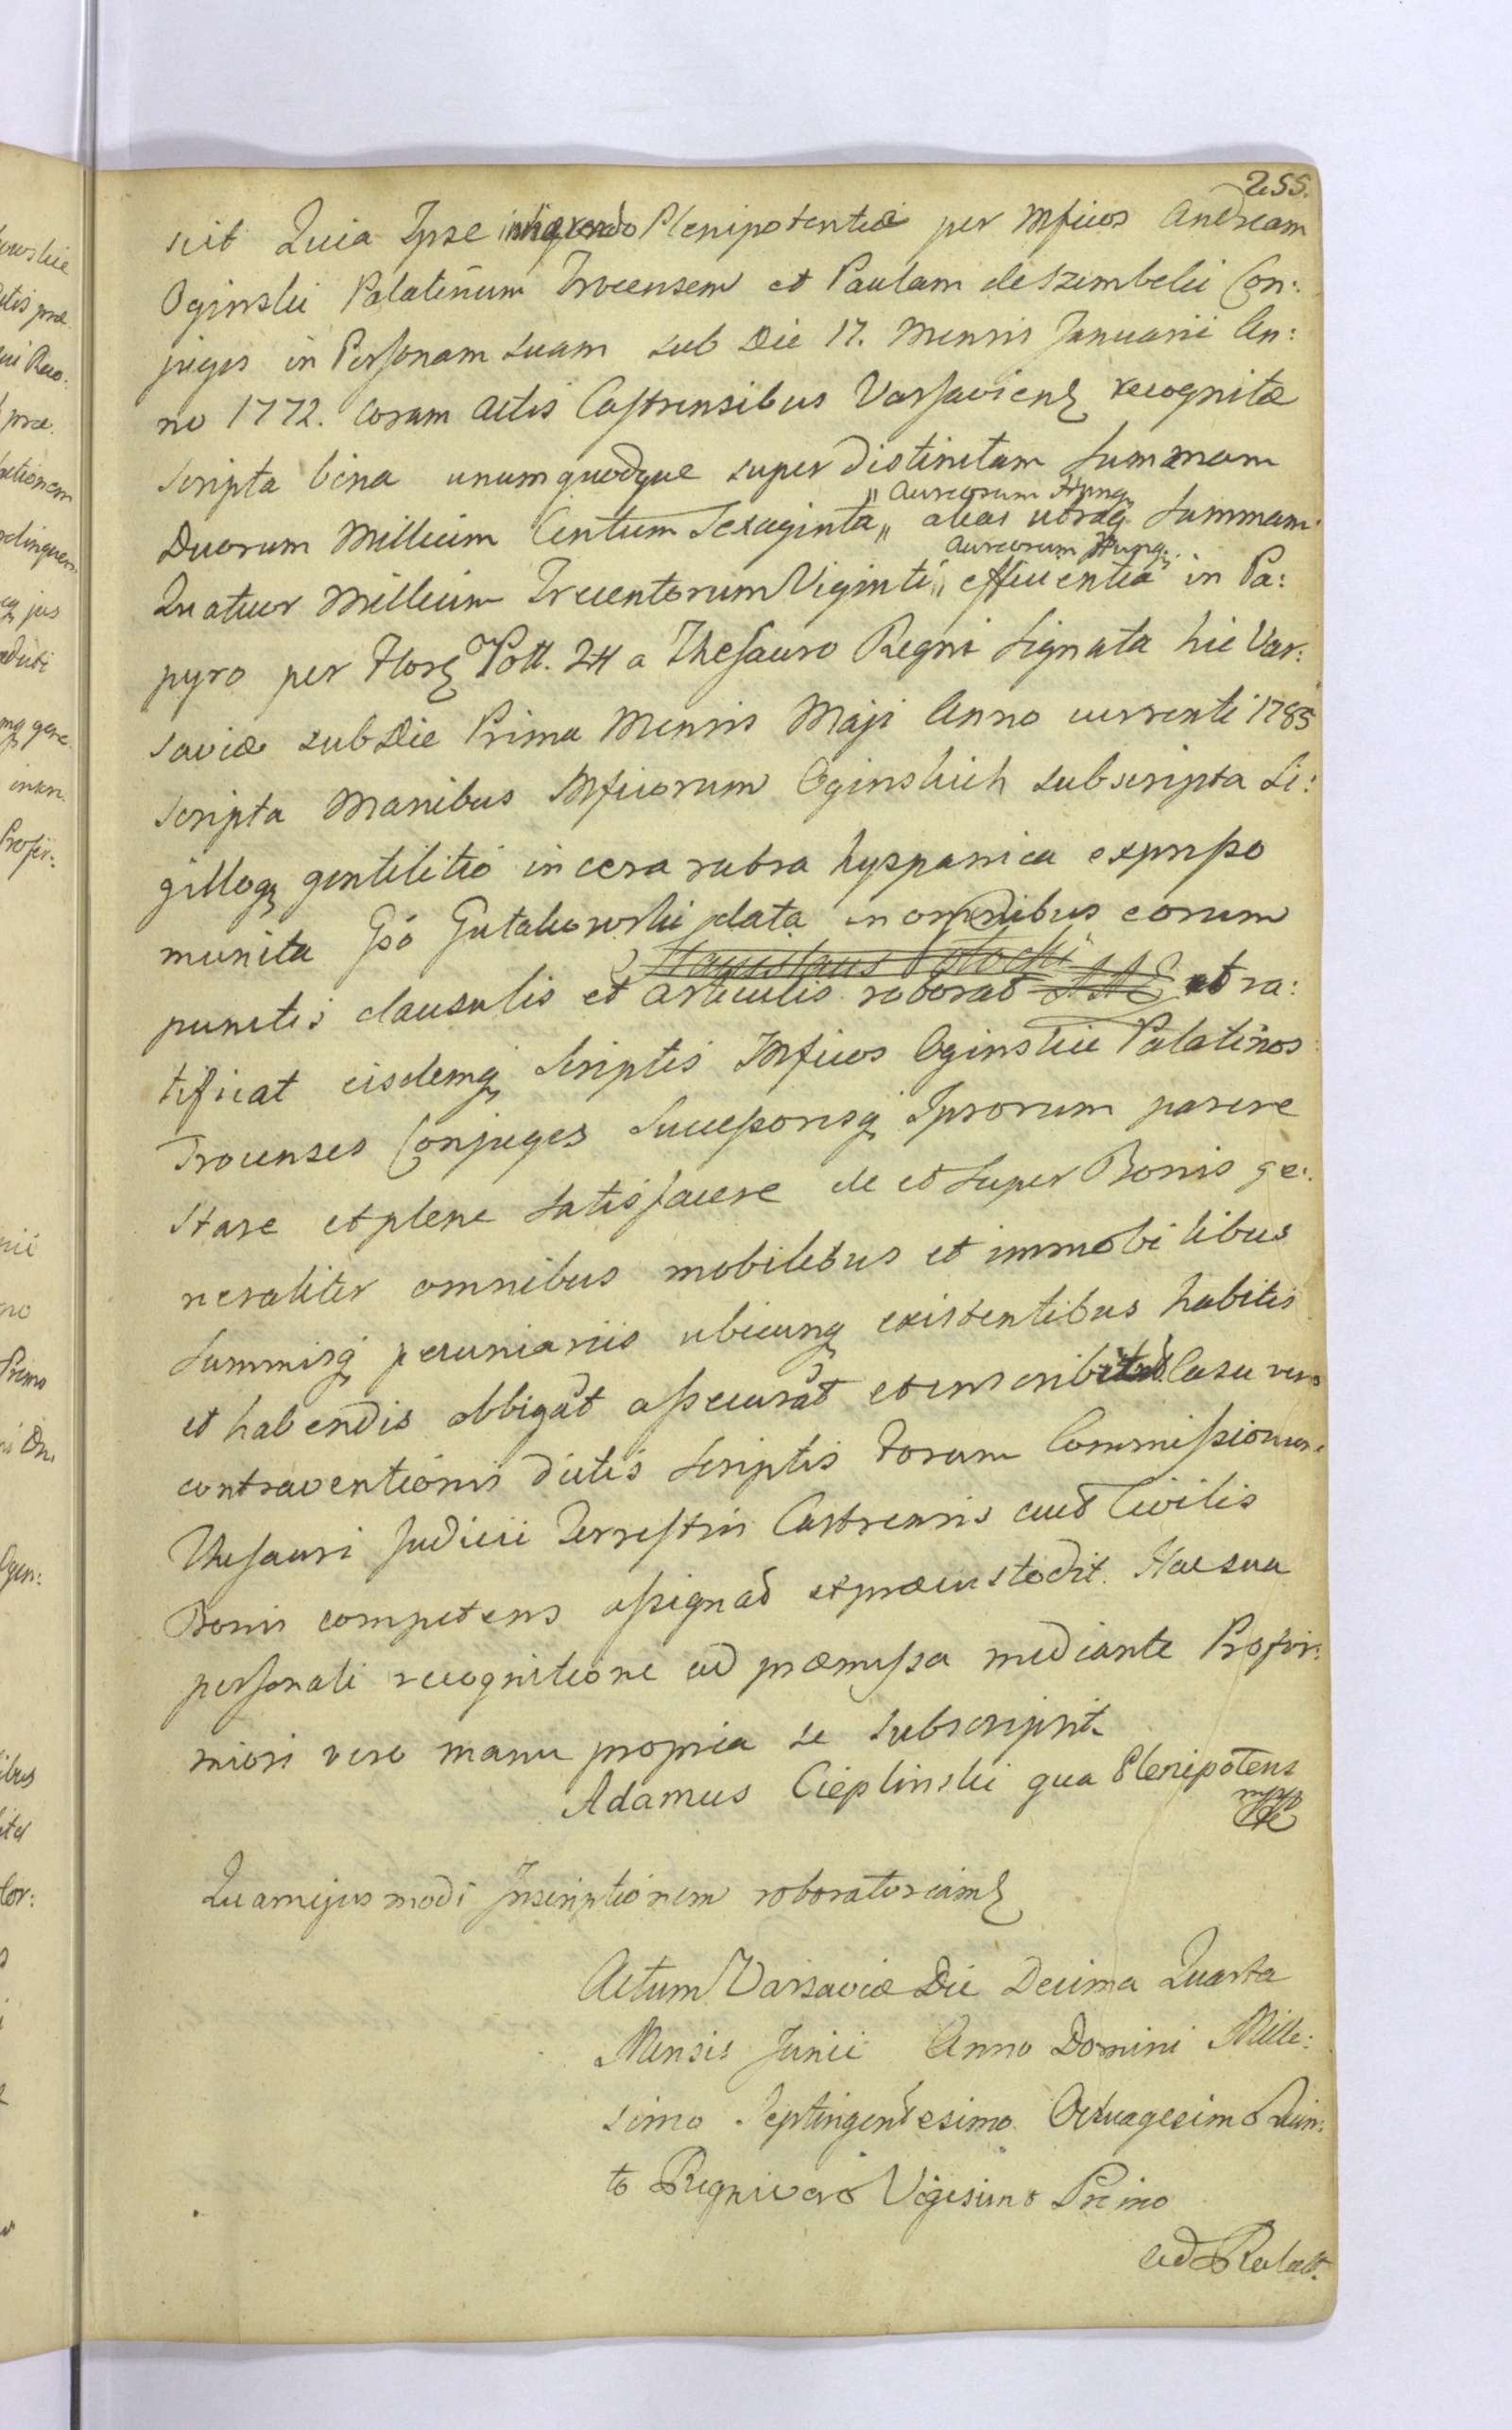 255.
scit Quia Ipse inhærendo Plenipotentiæ per Mficos Andream
Oginskii Palatinum Trocensem et Paulam de Szembeki Con:
juges in Personam suam sub Die 17. Mensis Januarii An:
no 1772. coram Actis Castrensibus Varsavien recognitæ
scripta bina unumquodque super distinctam Summam
Duorum Millium Centum Sexaginta „ Aureorum Hung. alias utraq Summam
Quatuor Millium Trecentorum Viginti „ Aureorum Hung. efficientia in Pa:
pyro per Flor Poll. 24 a Thesauro Regni Signata hic Var:
saviæ sub Die Prima Mensis Maji Anno currenti 1785
scripta Manibus Mficorum Oginskich subscripta Si:
gilloq gentilitio in cera rubra hyspanica expresso
munita Gso Gutakowski data in omnibus eorum
Stanislaus Potocki
punctis clausulis et articulis roborat et ra:
tificat eisdemq Scriptis Mficos Oginskie Palatinos
Trocenses Conjuges Successoresq Ipsorum parere
stare et plene satisfacere de et super Bonis ge:
neraliter omnibus mobilibus et immobilibus
Summisq pecuniariis ubicunq existentibus habitis
et habendis obbigat assecurat et inscribit Casu vero
contraventionis dictis Scriptis Forum Commissionis
Thesauri Judicii Terrestris Castrensis aut Civilis
Bonis competens assignat et præcustodit. Hac sua
personali recognitione ad præmissa mediante Profir:
miori vero manu propria se subscripsit
Adamus Cieplinski qua Plenipotens
mpp
Quam ejusmodi Inscriptionem roboratoriam
Actum Varsaviæ Die Decima Quarta
Mensis Junii Anno Domini Mille:
simo Septingentesimo Octuagesimo Quin:
to Regni vero Vigesimo Primo
ad Relat.